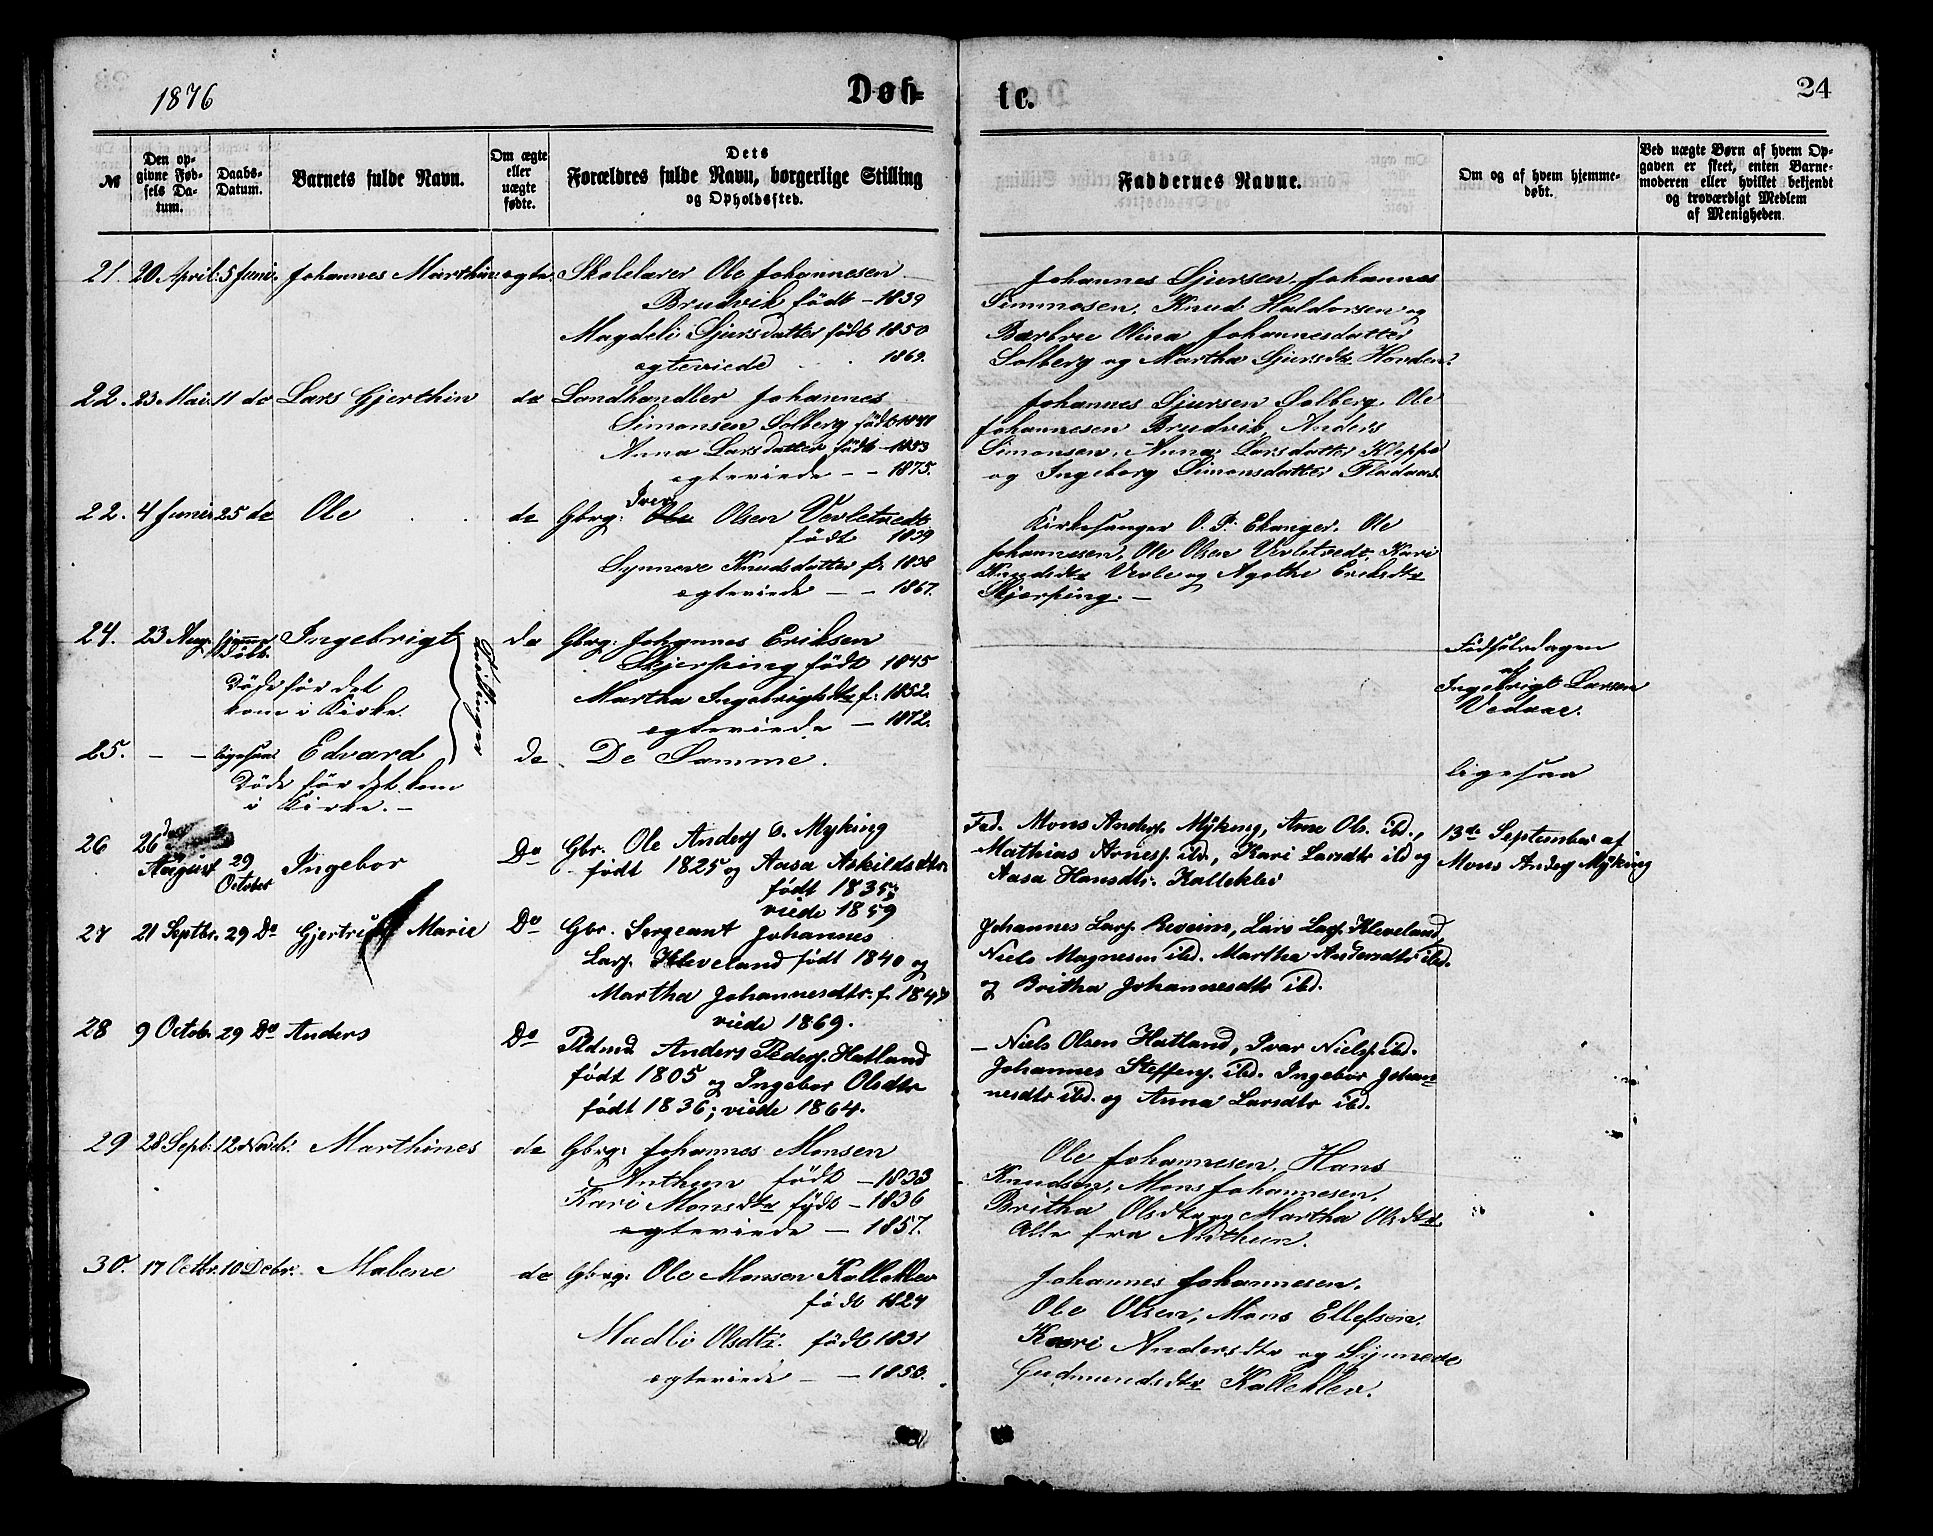 1876
Døb-
te.
24
№
Den op-
givne Fød-
sels Da-
tum.
Daabs-
Datum.
Barnets fulde Navn.
Om ægte
eller
uægte
fødte.
Dets
Forældres fulde Navn, borgerlige Stilling
og Opholdssted.
Faddernes Navne.
Om og af hvem hjemme-
døbt.
Ved uægte Børn af hvem Op-
gaven er skeet, enten Barne-
moderen eller hvilket bekjendt
og troværdigt Medlem
af Menigheden
21. 20 April. 5 Juni. Johannes Marthin ægte. Skolelærer Ole Johannesen
Brudvik födt – 1839
Magdeli Sjursdatter födt 1850
egteviede 1869.
Johannes Sjursen, Johannes
Simmosen, Knud Haldorsen og
Barbre Olina Johannesdatter
Solberg og Martha Sjursdtr
22. 23 Mai. 11 do Lars Gjerthin do Landhandler Johannes
Simonsen Solberg födt
Anna Larsdatter födt 1853
egteviede – – 1875.
Johannes Sjursen Solberg, Ole
Johannesen Brudvik, Anders
Simonsen, Anna Larsdatter Kleppe
og Ingeborg Simonsdatter
22. 4 Juni 25 do Ole do Gbrg: Iver Ole Olsen
födt 1839
Synneve Knudsdatter f. 1838
egteviede – – 1867.
Kirkesanger O. P. Ekanger, Ole
Johannesen, Ole Olsen Kari
Knudsdtr og Agathe Eriksdtr
Skjerping. –
24. 23 Aug. hjemme
döbt. Ingebrigt do Gbrg. Johannes Eriksen
Döde för det
kom i Kirke.
Tvillinger
Skjerping födt 1845
Martha Ingebrigtsdtr f: 1852.
egteviede – 1872.
Födselsdagen
af
Ingebrigt Larsen
Vedaae.
25. – – ligesaa. Edvard do De Samme.
Döde för det kom
i Kirke. –
ligesaa
26 26de August 29 October Ingebor Do Gbr. Ole Anders O. Myking
født 1825 og Aasa Askildsdtr
født 1835;
viede 1859
Fad. Mons Anders. Myking, Arne Ols. ibd.,
Mathias Arnes. ibd., Kari Larsdtr ibd og
Aasa Hansdtr. Kalleklei
13de September af
Mons Anders Myking
27 21 Septbr. 29 Do Gjertrud Marie Do Gbr. Sergeant Johannes
Lars. Kleveland født 1840 og
Martha Johannesdtr. f. 1847
viede 1869.
Johannes Lars. Lars Lars. Kleveland,
Niels Magnesen ibd. Martha Andersdtr ibd.
og Britha Johannesdtr ibd.
28 9 Octob. 29 Do Anders Do Anders Peders. Hatland
født 1805 og Ingebor Olsdtr
født 1836; viede 1864.
– Niels Olsen Hatland, Ivar Niels. ibd.
Johannes Steffens. ibd. Ingebor Johan-
nesdtr ibd. og Anna Larsdtr ibd.
29 28 Sept: 12 Novbr. Marthines do Gbrg: Johannes Monsen
Anthun födt – 1833
Kari Monsdtr födt – 1836
egteviede – 1857.
Ole Johannesen, Hans
Knudsen, Mons Johannesen,
Britha Olsdtr og Martha Olsdtr
Alle fra Anthun.
30. 17 Octbr. 10 Debr. Malene do Gbrg: Ole Monsen Kalleklev
födt 1827
Madli Olsdtr. födt 1831
egteviede – – 1850.
Johannes Johannesen,
Ole Olsen, Mons Ellefsen,
Kari Andersdtr og Synneve
Gudmundsdtr Kalleklev.